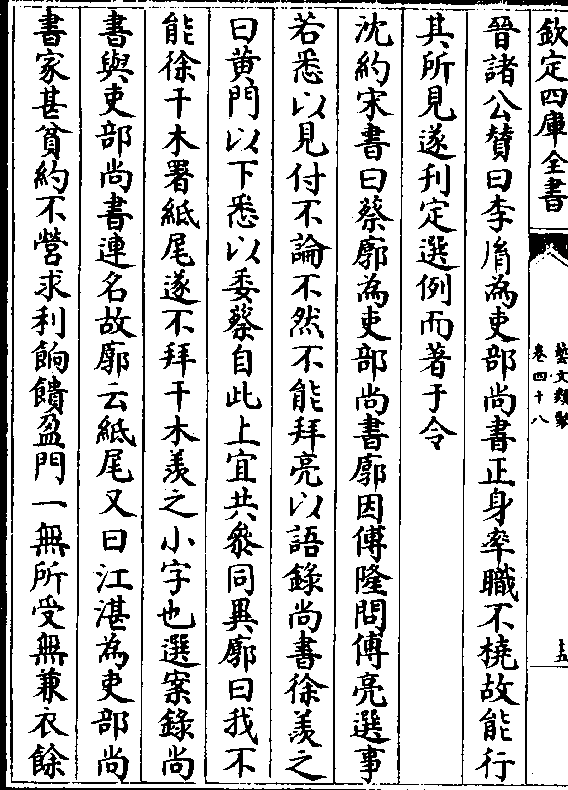 欽定四庫全書
藝文類聚
卷四十八
十五
晉諸公贊曰李胤為吏部尚書正身率職不橈故能行
其所見遂刋定選例而著于令
沈約宋書曰蔡廓為吏部尚書廓因傅隆問傅亮選事
若悉以見付不論不然不能拜亮以語錄尚書徐羨之
曰黃門以下悉以委蔡自此上宜共參同異廓曰我不
能徐干木署紙尾遂不拜干木羨之小字也選案錄尚
書與吏部尚書連名故廓云紙尾又曰江湛為吏部尚
書家甚貧約不營求利餉饋盈門一無所受無兼衣餘